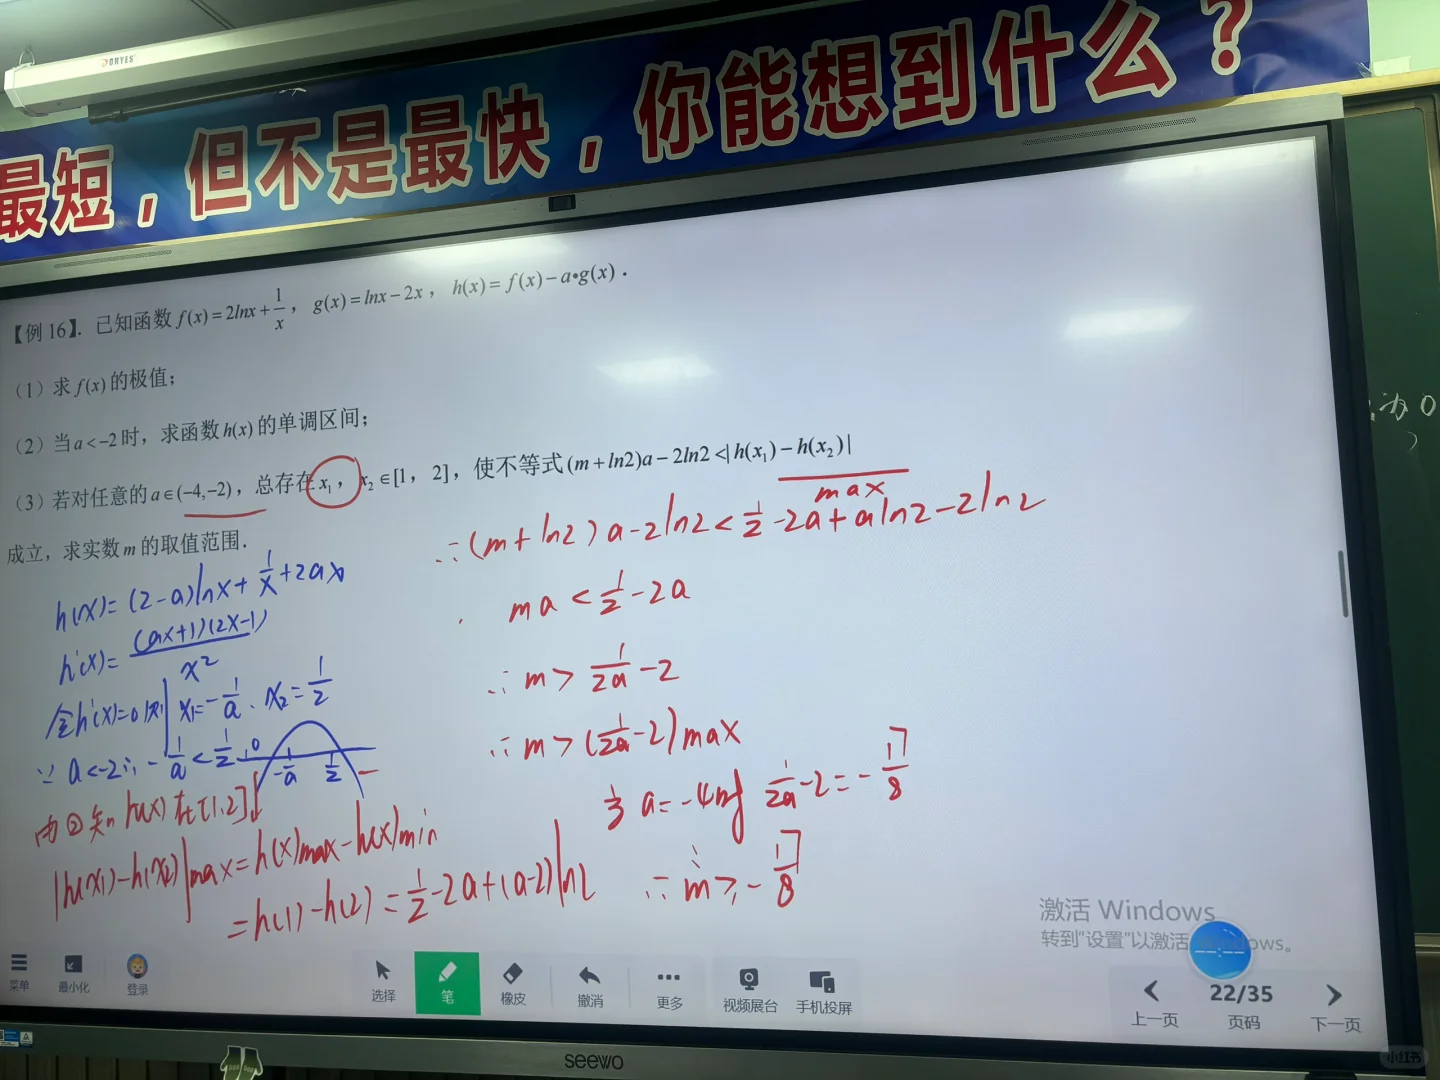 DONYES
最短，但不是最快，你能想到什么？
【例 16】．已知函数 f(x)=2lnx+1/x，g(x)=lnx−2x，h(x)=f(x)−a•g(x)．
（1）求 f(x) 的极值；
（2）当 a<−2 时，求函数 h(x) 的单调区间；
（3）若对任意的 a∈(−4,−2)，总存在 x₁，x₂∈[1，2]，使不等式 (m+ln2)a−2ln2<|h(x₁)−h(x₂)|
成立，求实数 m 的取值范围．
max
h(x)=(2-a)lnx+1/x+2ax
h'(x)=(ax+1)(2x-1)/x²
令h'(x)=0则 x₁=-1/a、x₂=1/2
∵ a<-2∴-1/a<1/2
0 -1/a 1/2 -
由②知 h(x) 在[1,2]↓
|h(x₁)-h(x₂)|max=h(x)max-h(x)min
=h(1)-h(2)=1/2-2a+(a-2)ln2
∴(m+ln2)a-2ln2<1/2-2a+aln2-2ln2
ma<1/2-2a
∴ m>1/2a-2
∴ m>(1/2a-2)max
当 a=-4时 1/2a-2=-17/8
∴ m≥-17/8
办0
激活 Windows
转到"设置"以激活 Windows。
菜单
最小化
登录
选择
笔
橡皮
撤消
更多
视频展台
手机投屏
上一页
22/35
页码
下一页
seewo
小红书